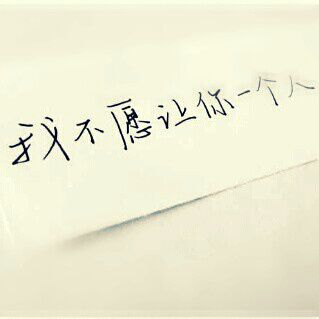 我不愿让你一个人